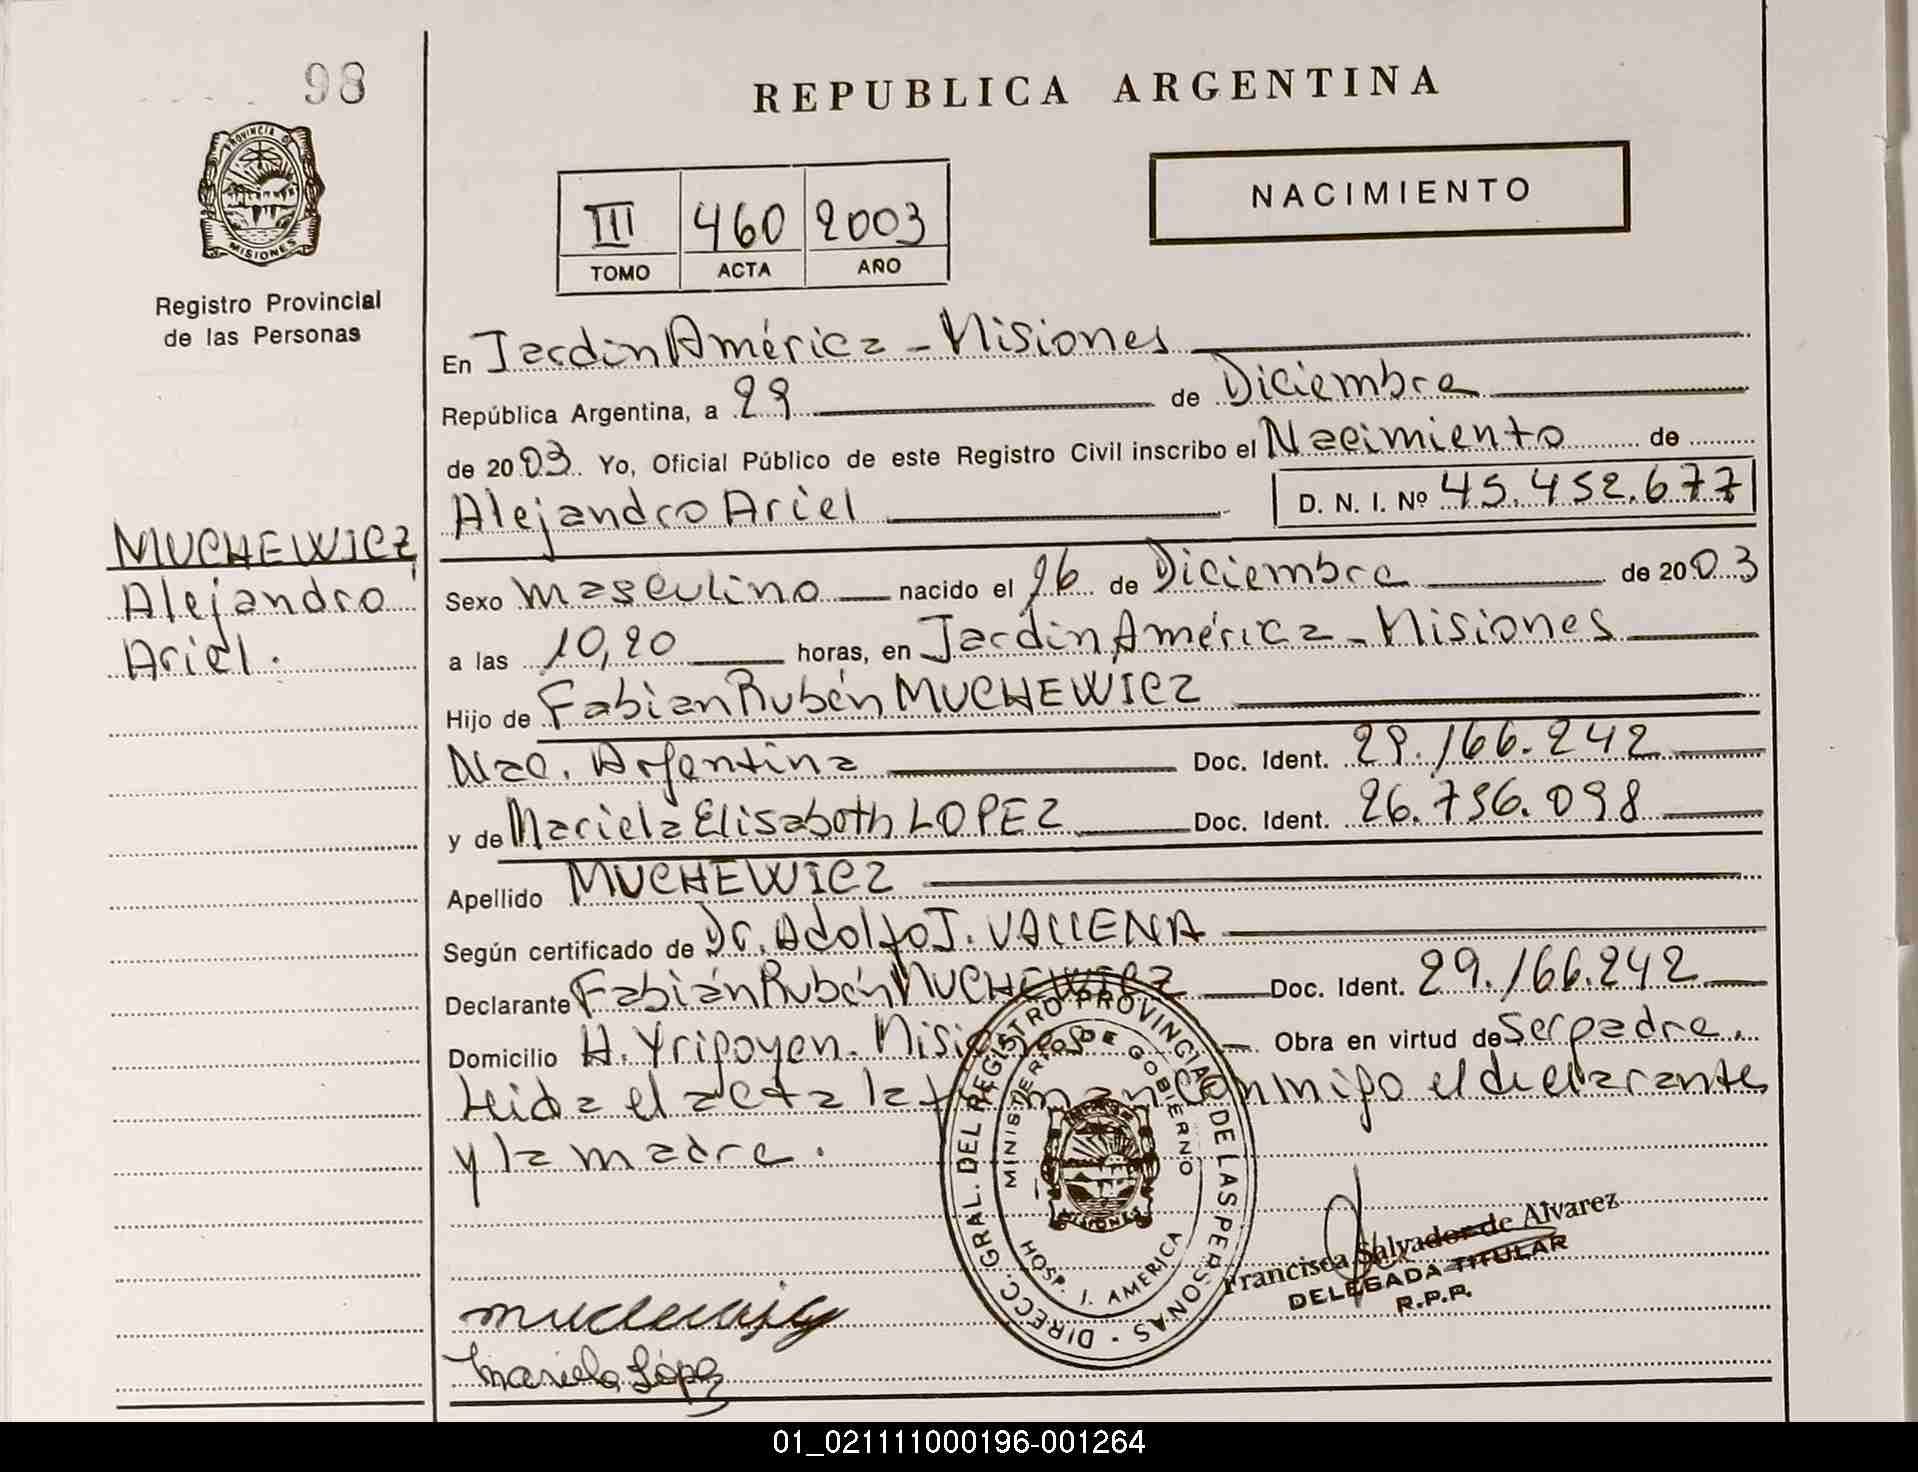 98
REPUBLICA ARGENTINA
PROVINCIA DE
MISIONES
Registro Provincial
de las Personas
NACIMIENTO
III 460 2003
TOMO ACTA AÑO
En Jardin América - Misiones
República Argentina, a 29 de Diciembre
de 2003. Yo, Oficial Público de este Registro Civil inscribo el Nacimiento de
Alejandro Ariel D. N. I. Nº 45.452.677
MUCHEWICZ,
Alejandro
Ariel.
Sexo Masculino nacido el 26 de Diciembre de 2003
a las 10,20 horas, en Jardin América - Misiones
Hijo de Fabian Rubén MUCHEWICZ
Nac. Argentina Doc. Ident. 29.166.242
y de Mariela Elisabeth LOPEZ Doc. Ident. 26.756.098
Apellido MUCHEWICZ
Según certificado de Dr. Adolfo J. VALLENA
Declarante Fabián Rubén MUCHEWICZ Doc. Ident. 29.166.242
Domicilio H. Yrigoyen. Misiones Obra en virtud de Ser padre.
Leida el acta la firman conmigo el declarante
y la madre.
DIRECC. GRAL. DEL REGISTRO PROVINCIAL DE LAS PERSONAS
MINISTERIO DE GOBIERNO
MISIONES
HOSP. J. AMERICA
Francisca Salvador de Alvarez
DELEGADA TITULAR
R.P.P.
Mariela López
01_021111000196-001264